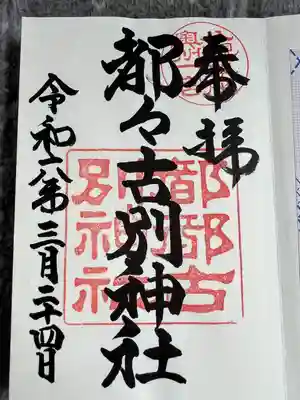 奉拝
都々古別神社
都都古
別神社
令和六年三月二十四日